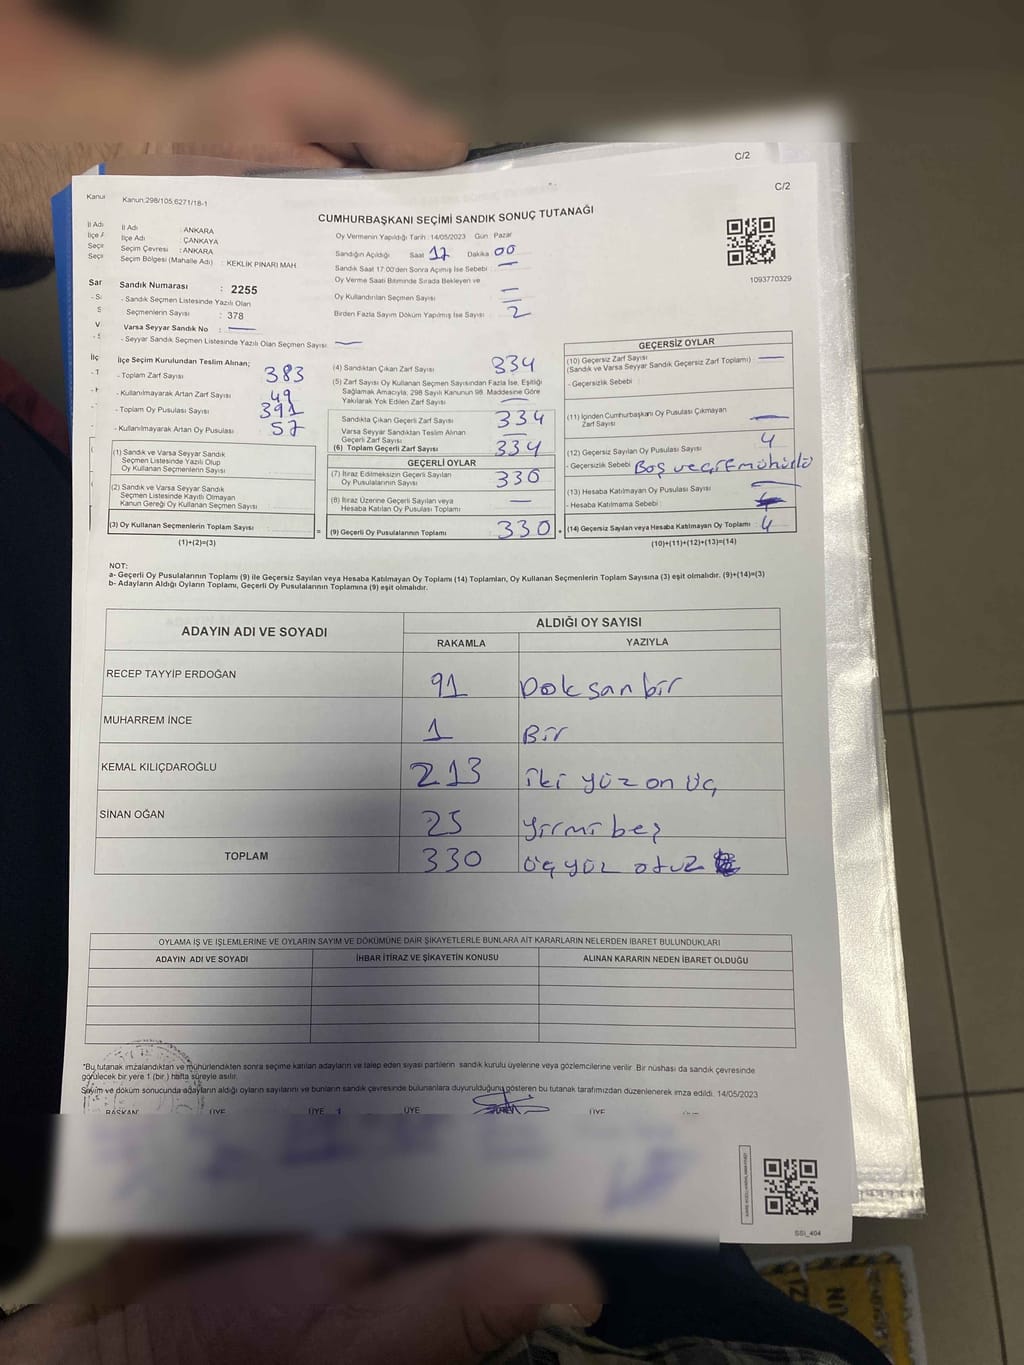 C/2
C/2
Kanun;298/105,6271/18-1
CUMHURBAŞKANI SEÇİMİ SANDIK SONUÇ TUTANAĞI
İl Adı : ANKARA
İlçe Adı : ÇANKAYA
Seçim Çevresi : ANKARA
Seçim Bölgesi (Mahalle Adı) : KEKLİK PINARI MAH.
Oy Vermenin Yapıldığı Tarih :14/05/2023 Gün : Pazar
Sandığın Açıldığı Saat 17 Dakika 00
Sandık Saat 17:00'den Sonra Açılmış İse Sebebi : —
Oy Verme Saati Bitiminde Sırada Bekleyen ve
Oy Kullandırılan Seçmen Sayısı : —
Birden Fazla Sayım Döküm Yapılmış İse Sayısı : 2
1093770329
Sandık Numarası : 2255
- Sandık Seçmen Listesinde Yazılı Olan
Seçmenlerin Sayısı : 378
Varsa Seyyar Sandık No : —
- Seyyar Sandık Seçmen Listesinde Yazılı Olan Seçmen Sayısı : —
İlçe Seçim Kurulundan Teslim Alınan;
- Toplam Zarf Sayısı : 383
- Kullanılmayarak Artan Zarf Sayısı : 49
- Toplam Oy Pusulası Sayısı : 391
- Kullanılmayarak Artan Oy Pusulası : 57
(1) Sandık ve Varsa Seyyar Sandık
Seçmen Listesinde Yazılı Olup
Oy Kullanan Seçmenlerin Sayısı :
(2) Sandık ve Varsa Seyyar Sandık
Seçmen Listesinde Kayıtlı Olmayan
Kanun Gereği Oy Kullanan Seçmen Sayısı :
(3) Oy Kullanan Seçmenlerin Toplam Sayısı : =
(1)+(2)=(3)
(4) Sandıktan Çıkan Zarf Sayısı : 334
(5) Zarf Sayısı Oy Kullanan Seçmen Sayısından Fazla İse, Eşitliği
Sağlamak Amacıyla; 298 Sayılı Kanunun 98. Maddesine Göre
Yakılarak Yok Edilen Zarf Sayısı : —
Sandıkta Çıkan Geçerli Zarf Sayısı : 334
Varsa Seyyar Sandıktan Teslim Alınan
Geçerli Zarf Sayısı : —
(6) Toplam Geçerli Zarf Sayısı : 334
GEÇERLİ OYLAR
(7) İtiraz Edilmeksizin Geçerli Sayılan
Oy Pusulasının Sayısı : 330
(8) İtiraz Üzerine Geçerli Sayılan veya
Hesaba Katılan Oy Pusulası Toplamı : —
(9) Geçerli Oy Pusulalarının Toplamı : 330 +
GEÇERSİZ OYLAR
(10) Geçersiz Zarf Sayısı : —
(Sandık ve Varsa Seyyar Sandık Geçersiz Zarf Toplamı)
- Geçersizlik Sebebi :
(11) İçinden Cumhurbaşkanı Oy Pusulası Çıkmayan
Zarf Sayısı : —
(12) Geçersiz Sayılan Oy Pusulası Sayısı : 4
- Geçersizlik Sebebi : Boş ve Çift mühürlü
(13) Hesaba Katılmayan Oy Pusulası Sayısı : —
- Hesaba Katılmama Sebebi :
(14) Geçersiz Sayılan veya Hesaba Katılmayan Oy Toplamı : 4
(10)+(11)+(12)+(13)=(14)
NOT:
a- Geçerli Oy Pusulalarının Toplamı (9) ile Geçersiz Sayılan veya Hesaba Katılmayan Oy Toplamı (14) Toplamları, Oy Kullanan Seçmenlerin Toplam Sayısına (3) eşit olmalıdır. (9)+(14)=(3)
b- Adayların Aldığı Oyların Toplamı, Geçerli Oy Pusulalarının Toplamına (9) eşit olmalıdır.
ADAYIN ADI VE SOYADI ALDIĞI OY SAYISI
RAKAMLA YAZIYLA
RECEP TAYYİP ERDOĞAN 91 Doksanbir
MUHARREM İNCE 1 Bir
KEMAL KILIÇDAROĞLU 213 iki yüz on üç
SİNAN OĞAN 25 yirmi beş
TOPLAM 330 üç yüz otuz
OYLAMA İŞ VE İŞLEMLERİNE VE OYLARIN SAYIM VE DÖKÜMÜNE DAİR ŞİKAYETLERLE BUNLARA AİT KARARLARIN NELERDEN İBARET BULUNDUKLARI
ADAYIN ADI VE SOYADI İHBAR İTİRAZ VE ŞİKAYETİN KONUSU ALINAN KARARIN NEDEN İBARET OLDUĞU
*Bu tutanak imzalandıktan ve mühürlendikten sonra seçime katılan adayların ve talep eden siyasi partilerin sandık kurulu üyelerine veya gözlemcilerine verilir. Bir nüshası da sandık çevresinde
görülecek bir yere 1 (bir ) hafta süreyle asılır.
Sayım ve döküm sonucunda adayların aldığı oyların sayılarını ve bunların sandık çevresinde bulunanlara duyurulduğunu gösteren bu tutanak tarafımızdan düzenlenerek imza edildi. 14/05/2023
BAŞKAN ÜYE ÜYE ÜYE ÜYE
SSİ_404